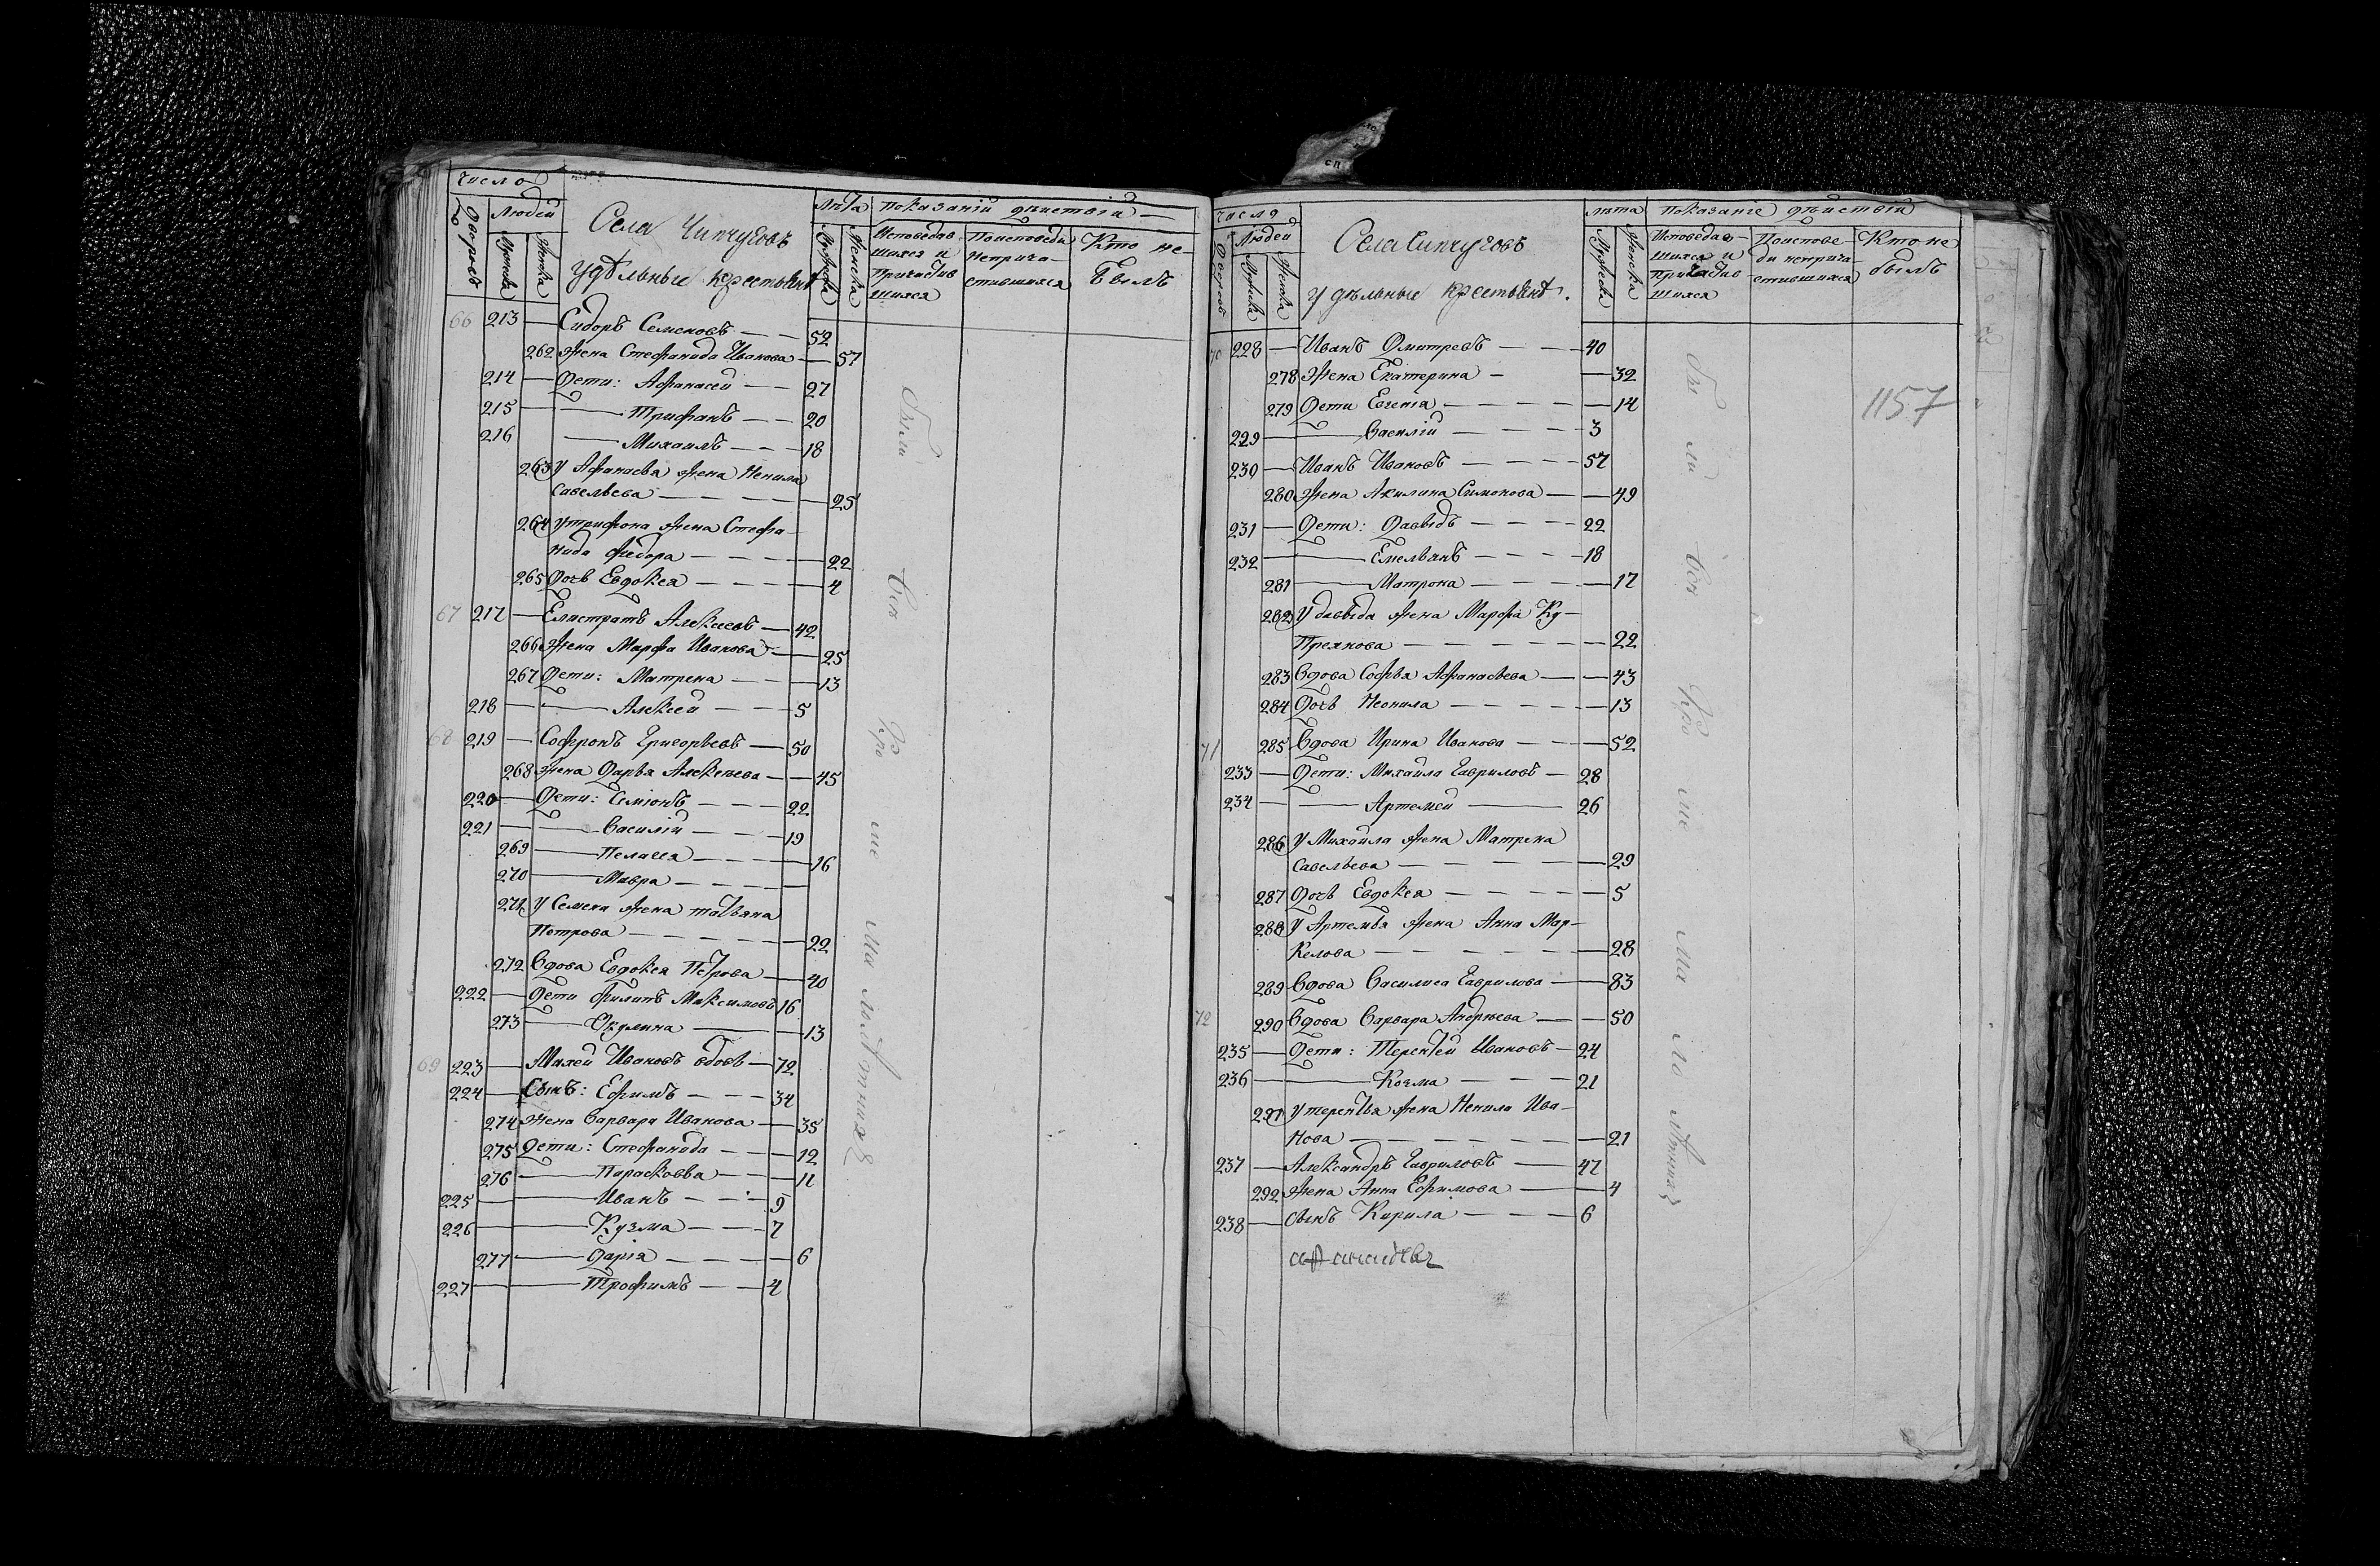 Число
Дворовъ
Людей
Мужска
Женска
Села Чипчуговъ
удѣльные крестьянѣ
Лѣта
Мужска
Женска
показаній дѣиствій
Исповедав-
шихся и
Причастив
шихся
Поисповеди
неприча-
стившихся
Кто не-
былъ
66 213 — Сидоръ Семеновъ — — 52
262 Жена Стефанида Иванова — 57
214 — Дети: Афанасей — — 27
215 — — Трифанъ — — 20
216 — Михаилъ — — 18
263 У Афанасва жена Ненила
Савельева — — — — 25
264 У трифона жена Стефа-
нида Федора — — — — 22
265 Дочь Евдокея — — — 4
67 217 — Елистратъ Алексеевъ — 42
266 Жена Марфа Иванова — 25
267 Дети: Матрена — — 13
218 — — Алексей — — 5
68 219 — Софронъ Григорьевъ — 50
268 Жена Дарья Алексеева — 45
220 — Дети: Симіонъ — — — 22
221 — — Василій — — — 19
269 — Пелагея — — — 16
270 — Мавра — — — —
271 У Семена жена татьяна
Петрова — — — — 22
272 Вдова Евдокея Петрова — 40
222 — Дети Филипъ Максимовъ 16
273 — Окулина — 13
69 223 — Махей Ивановъ вдовъ — 72
224 — Сынъ: Ефимъ — — — 34
274 Жена Варвара Иванова — 35
275 Дети: Стефанида — — 12
276 — Парасковва — — 11
225 — — Иванъ — — 9
226 — — Кузма — — 7
277 — Дарія — — — 6
227 — — Трофимъ — — 4
Были
Всѣ
Кро
ме
Ма
лолѣтнихъ
Число
Дворовъ
Людей
Мужска
Женска
Села Чипчуговъ
удѣльные крестьянѣ.
лѣта
Мужска
Женска
показаніе дѣиствій
Исповедав-
шихся и
причастив
шихся
Поиспове-
ди неприча-
стившихся
Кто не
былъ
1157
70 228 — Иванъ Дмитревъ — — 40
278 Жена Екатерина — — 32
279 Дети Евгенія — — — — 14
229 — — Василій — — — — 3
230 — Иванъ Ивановъ — — — 57
280 Жена Акилина Симонова — — 49
231 — Дети: Давыдъ — — — 22
232 — — Емельянъ — — — 18
281 — Матрона — — — — 17
282 У давыда жена Марфа Ку-
Преянова — — — — — 22
283 Вдова Софья Афанасьева — — 43
284 Дочь Неонила — — — — 13
71 285 Вдова Ирина Иванова — — — 52
233 — Дети: Михаила Гавриловъ — 28
234 — — Артемей — 26
286 У Михаила жена Матрена
Савельева — — — — — 29
287 Дочь Евдокея — — — — — 5
288 У Артемья жена Анна Мар-
Келова — — — — — 28
289 Вдова Василиса Гаврилова — — 83
72 290 Вдова Варвара Андреева — — 50
235 — Дети: Терентей Ивановъ — 24
236 — — Козма — — — 21
291 У терентья жена Ненила Ива-
нова — — — — — — 21
237 — Александръ Гавриловъ — 47
292 Жена Анна Ефимова — — 4
238 — Сынъ Кирила — — — 6
Бы
ли
Всѣ
Кро
ме
Ма
ло
лѣтнихъ